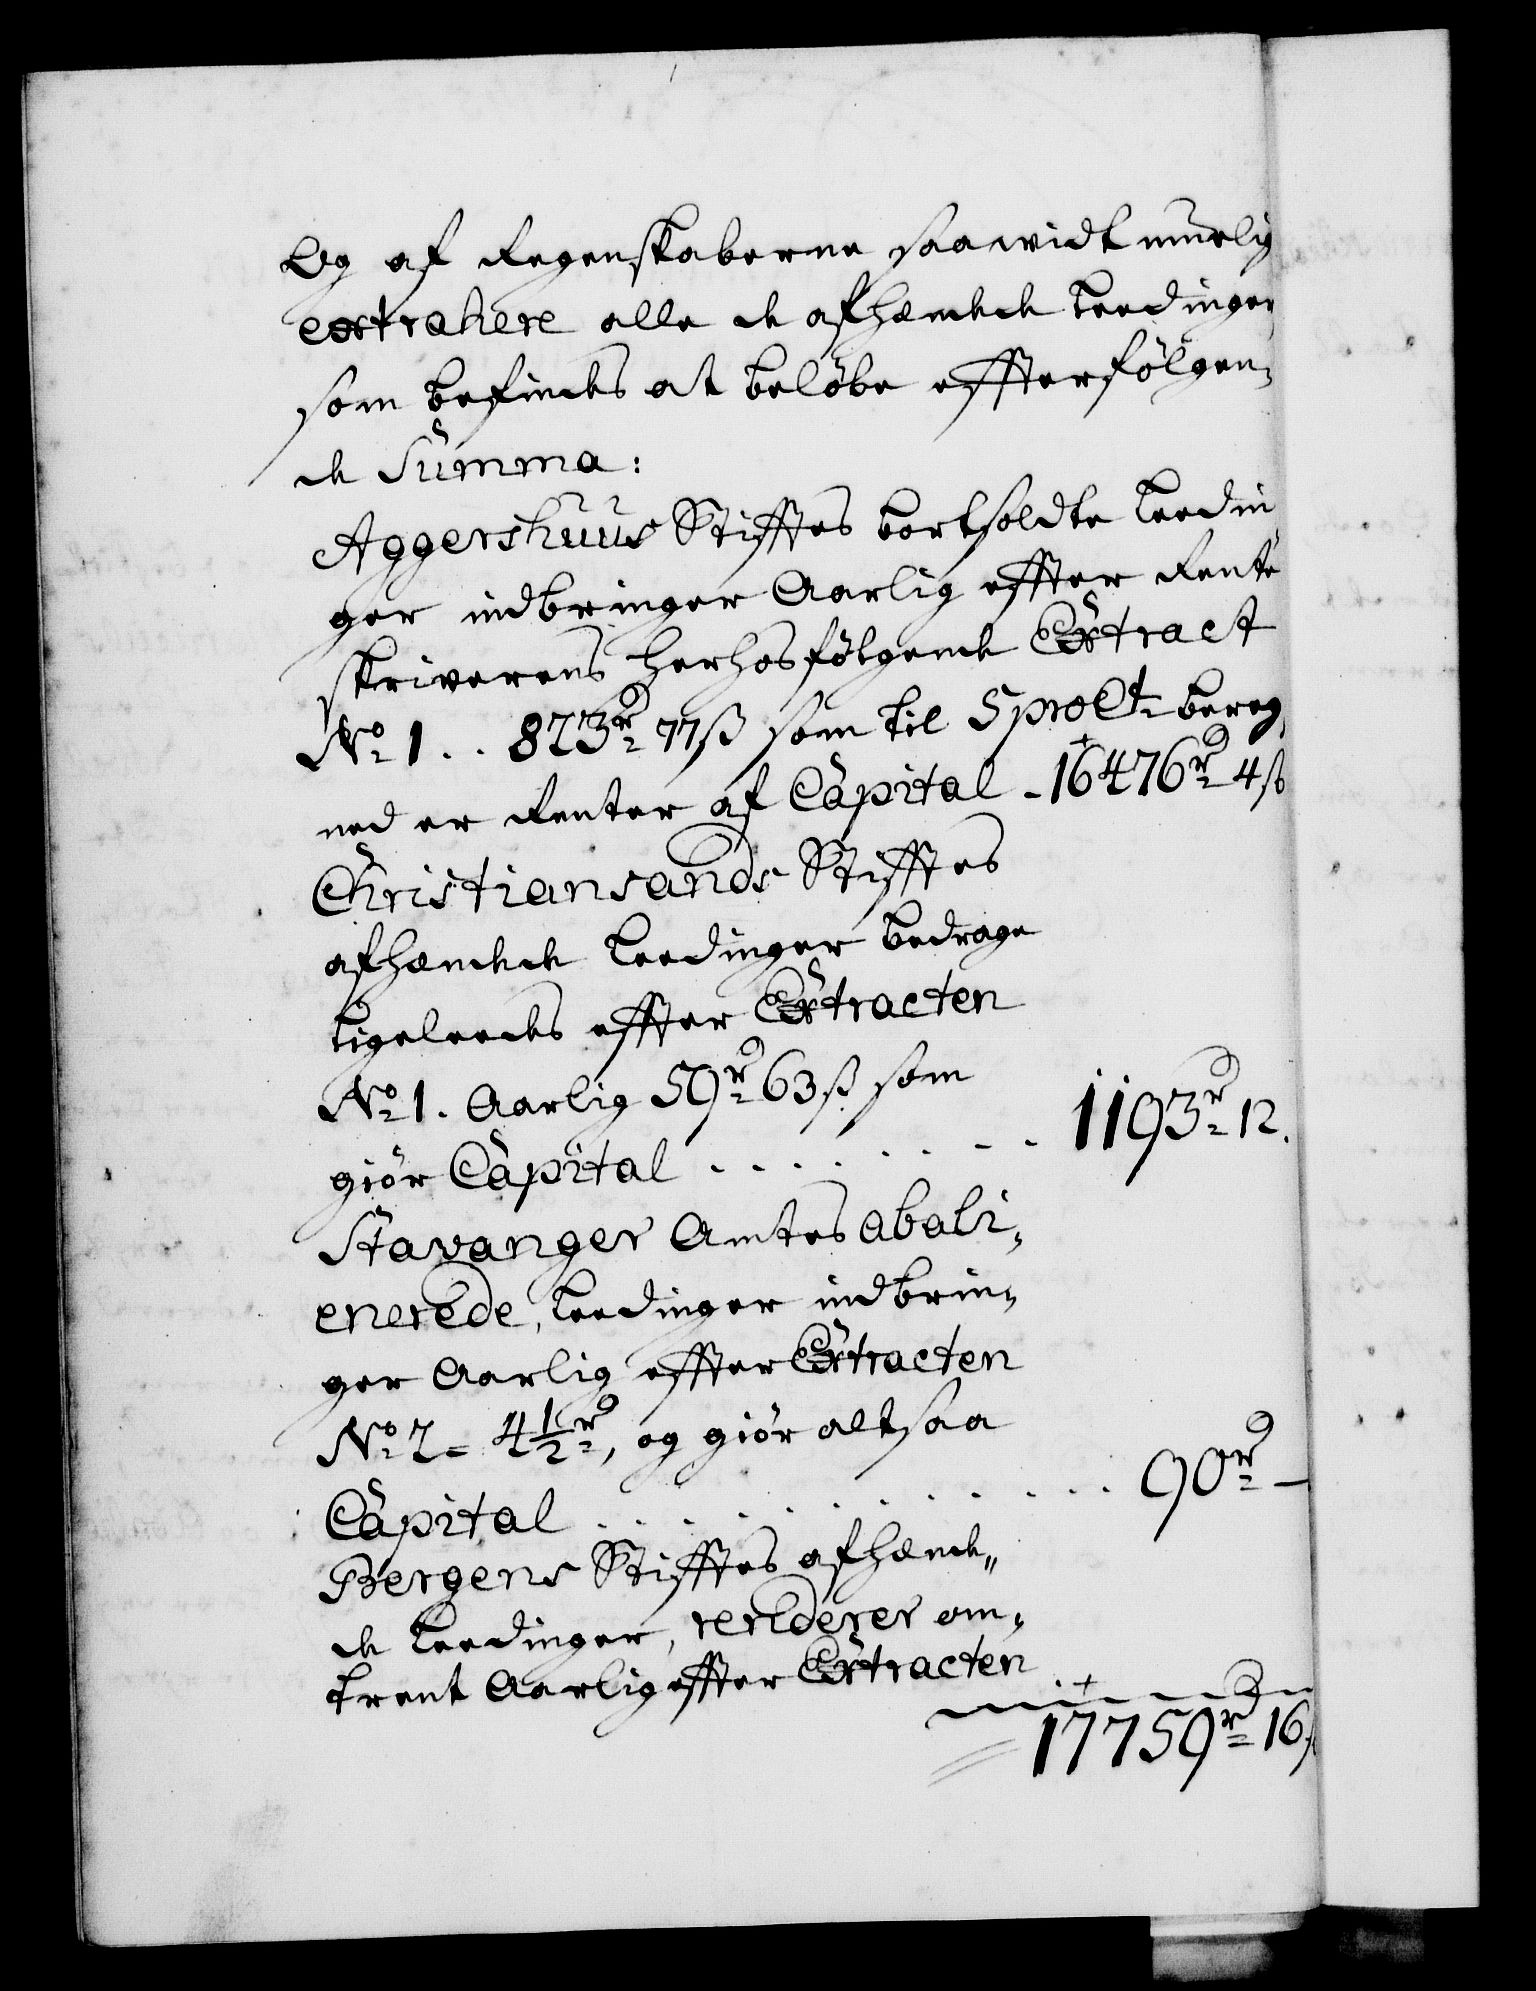 Og af Regenskaberne saawidt muelig
extrahere alle de afhændede Leedinger
som befindes at beløbe effterfølgen-
de Summa:
Aggershuus Stifftes bortsoldte Leedin
ger indbringer Aarlig effter Rente
skriverens herhosfølgende Extract
No 1 . . 823 R 77 ß som til 5 pro Ct bereg,
ned er Renter af Capital - 16476 R 4 ß
Christiansands Stifftes
afhændede Leedinger bedrage
ligeleedes effter Extracten
No 1. Aarlig 59 R 63 ß som
giør Capital . . . . . . . . . 1193 R 12.
Stavanger Amtes abali-
enerede, Leedinger indbrin-
ger Aarlig effter Extracten
No 2 = 4½ R, og giør altsaa
Capital . . . . . . . . . . . 90 R —
Bergens Stifftes afhænde„
de Leedinger, renderer om-
trent Aarlig effter Extracten
17759 R 16 ß